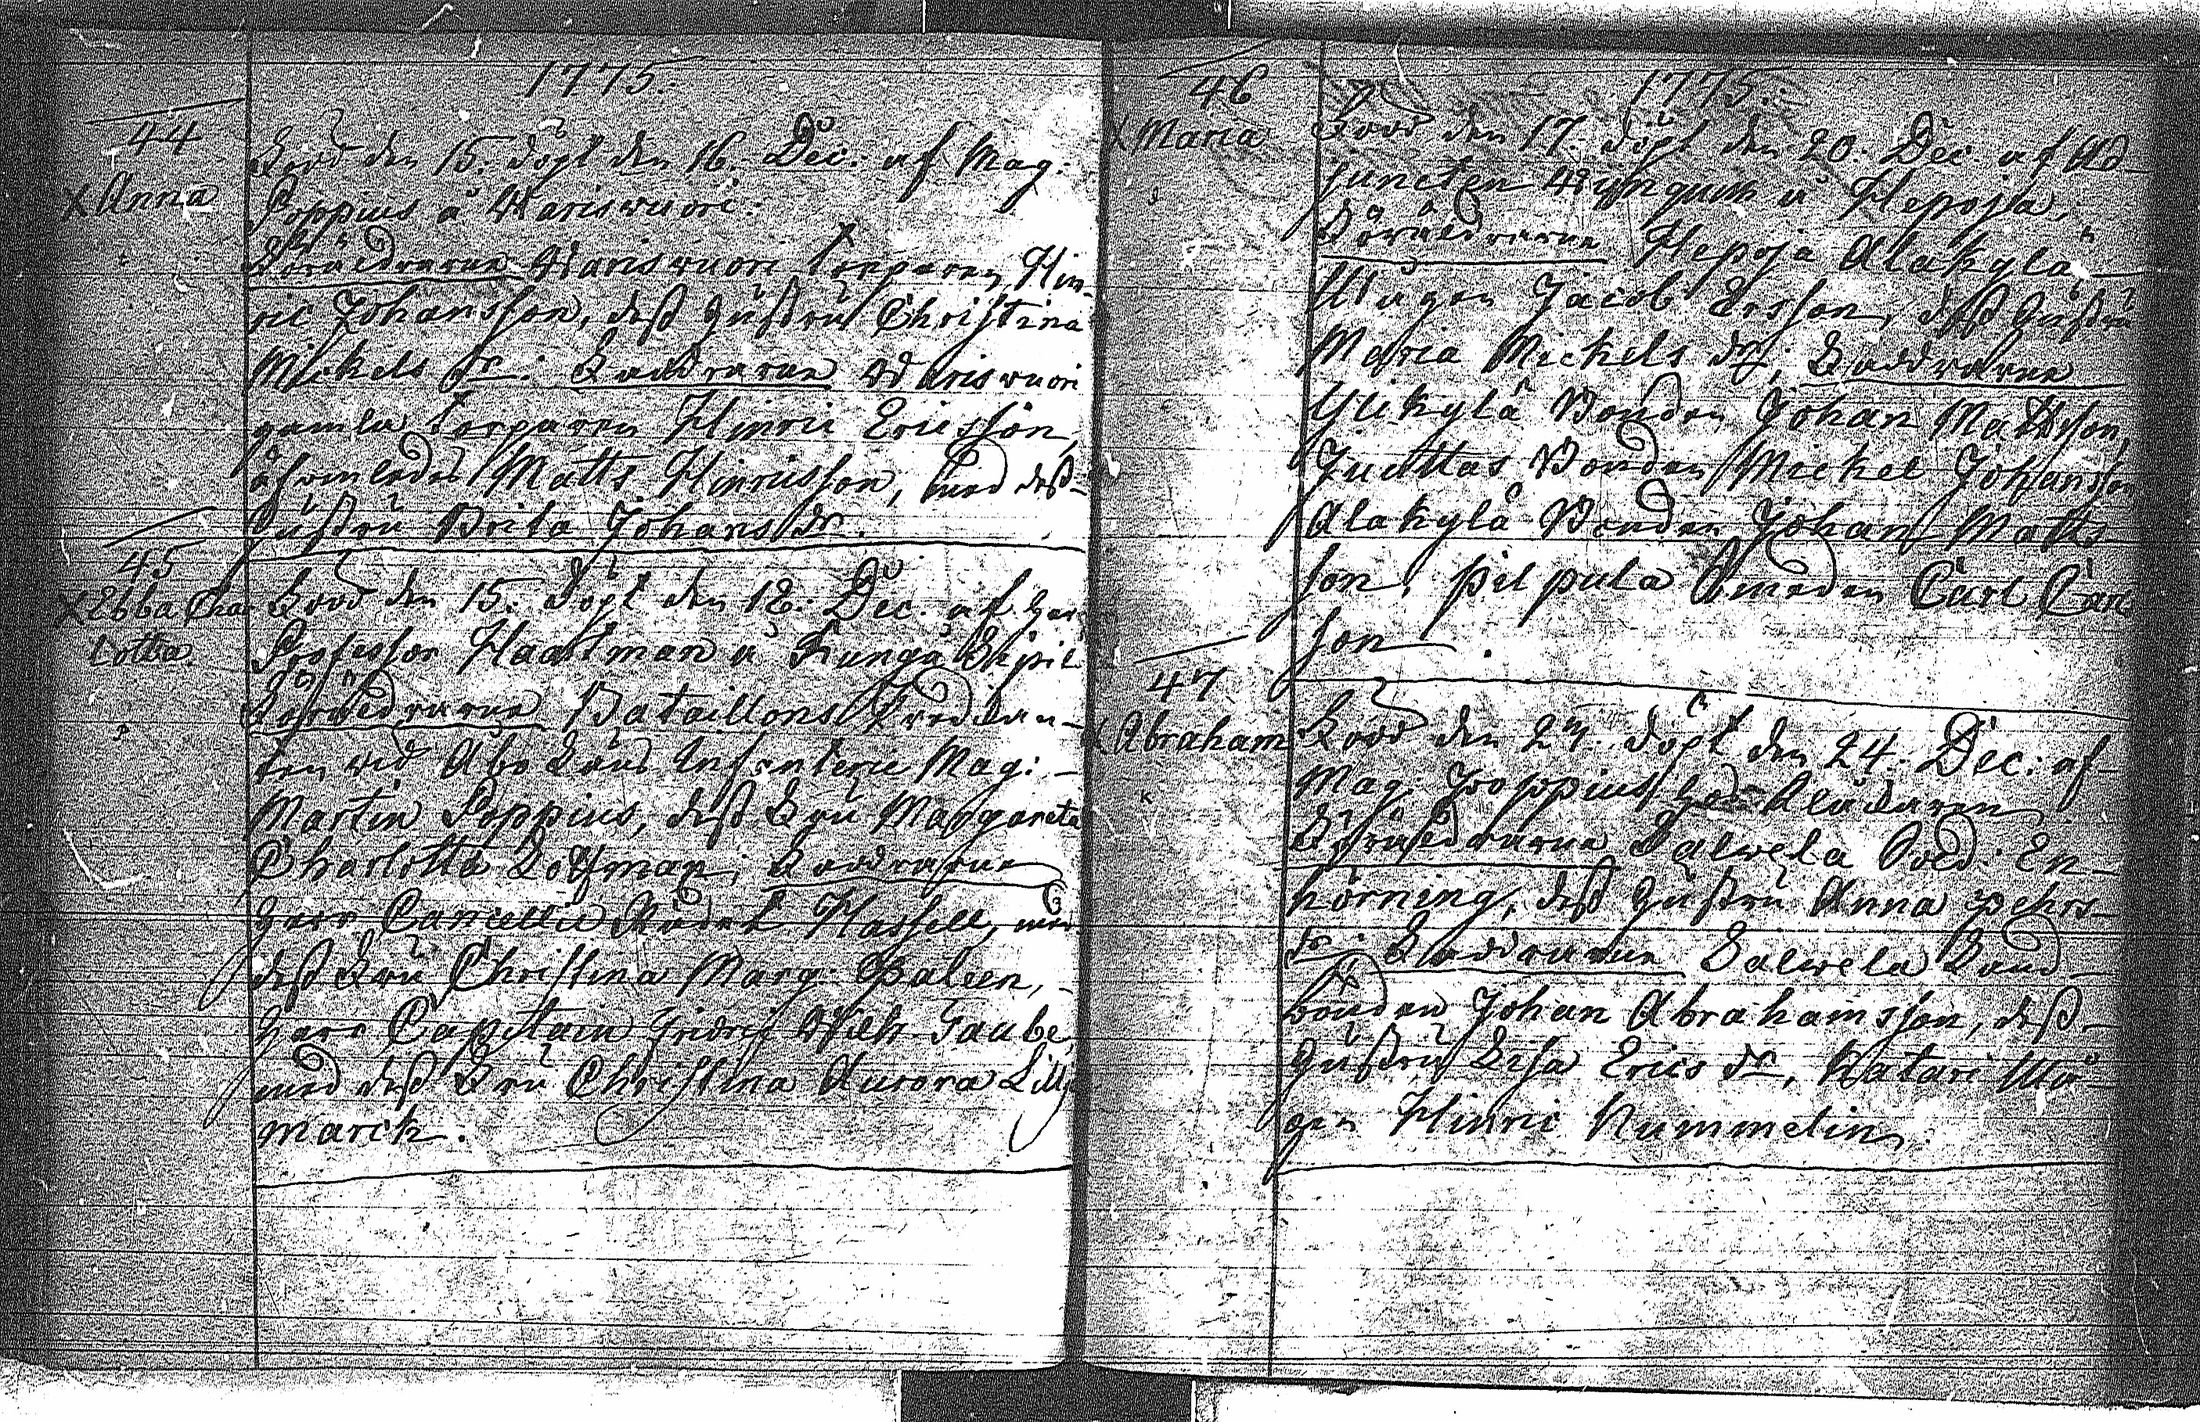 1775.
44
Född den 15. döpt den 16. Dec: af Mag:
X Anna
Poppius å Warisvuori:
Föräldrarne Warisvuori Torparen Hin-
ric Johansson, dess hustru Christina
Mickels dr: Faddrarne Warisvuori
gamla torparen Hinric Ericsson,
Matts Hinricsson, med dess
hustru Brita Johans dr.
45
X Ebba Char
lotta.
Född den 15. döpt den 18. Dec: af Herr
Professor Haartman å Kungå
Föräldrarne Bataillons Predikan-
ten vid Åbo Läns Infanterie Mag:
Martin Poppius, dess Fru Margareta
Charlotta Hoffman; Faddrarne
Herr Cancellie Rådet Hassell, med
dess Fru Christina Marg: Paleen,
Herr Capitain Fridric Wilh Taube,
med dess Fru Christina Aurora Lillje
marck.
1775.
46
X Maria
Född den 17. döpt den 20. Dec: af Ad-
juncten å Hepoja,
Föräldrarne Hepoja Alakylä
Mågen Jacob Ersson, dess hustru
Maria Mickels dr; Faddrarne
Ylikylä Bonden Johan Mattsson,
Juottas Bonden Mickel Johansson
Alakylä Bonden Johan Matts
son, Pilpula Smeden Carl Carl
son.
47
X Abraham
Född den 23. döpt den 24. Dec: af
Mag. Poppius
Föräldrarne Salwela Sold: En-
hörning, dess hustru Anna Pehrs-
dr: Faddrarne Salwela Land-
bonden Johan Abrahamsson, dess
hustru Lisa Erics dr, Katari Må-
gen Hinric Nummelin.